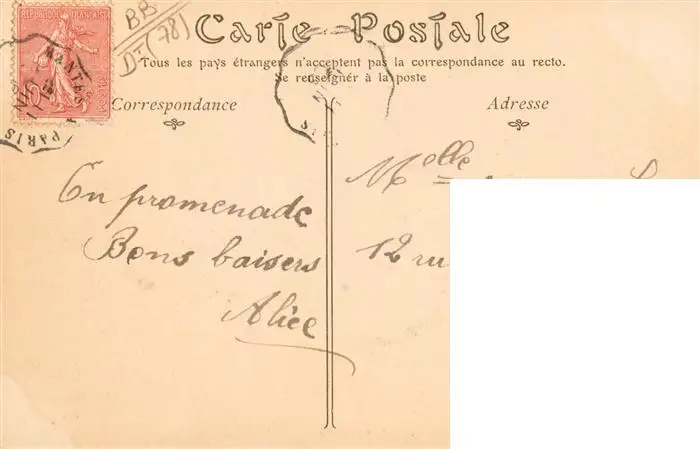 RÉPUBLIQUE FRANÇAISE
10
POSTES
BB
DT (78)
Carte Postale
Tous les pays étrangers n'acceptent pas la correspondance au recto.
Se renseigner à la poste
Correspondance
Adresse
PARIS
MANTES
En promenade
Bons baisers
Alice
Melle
12 ru